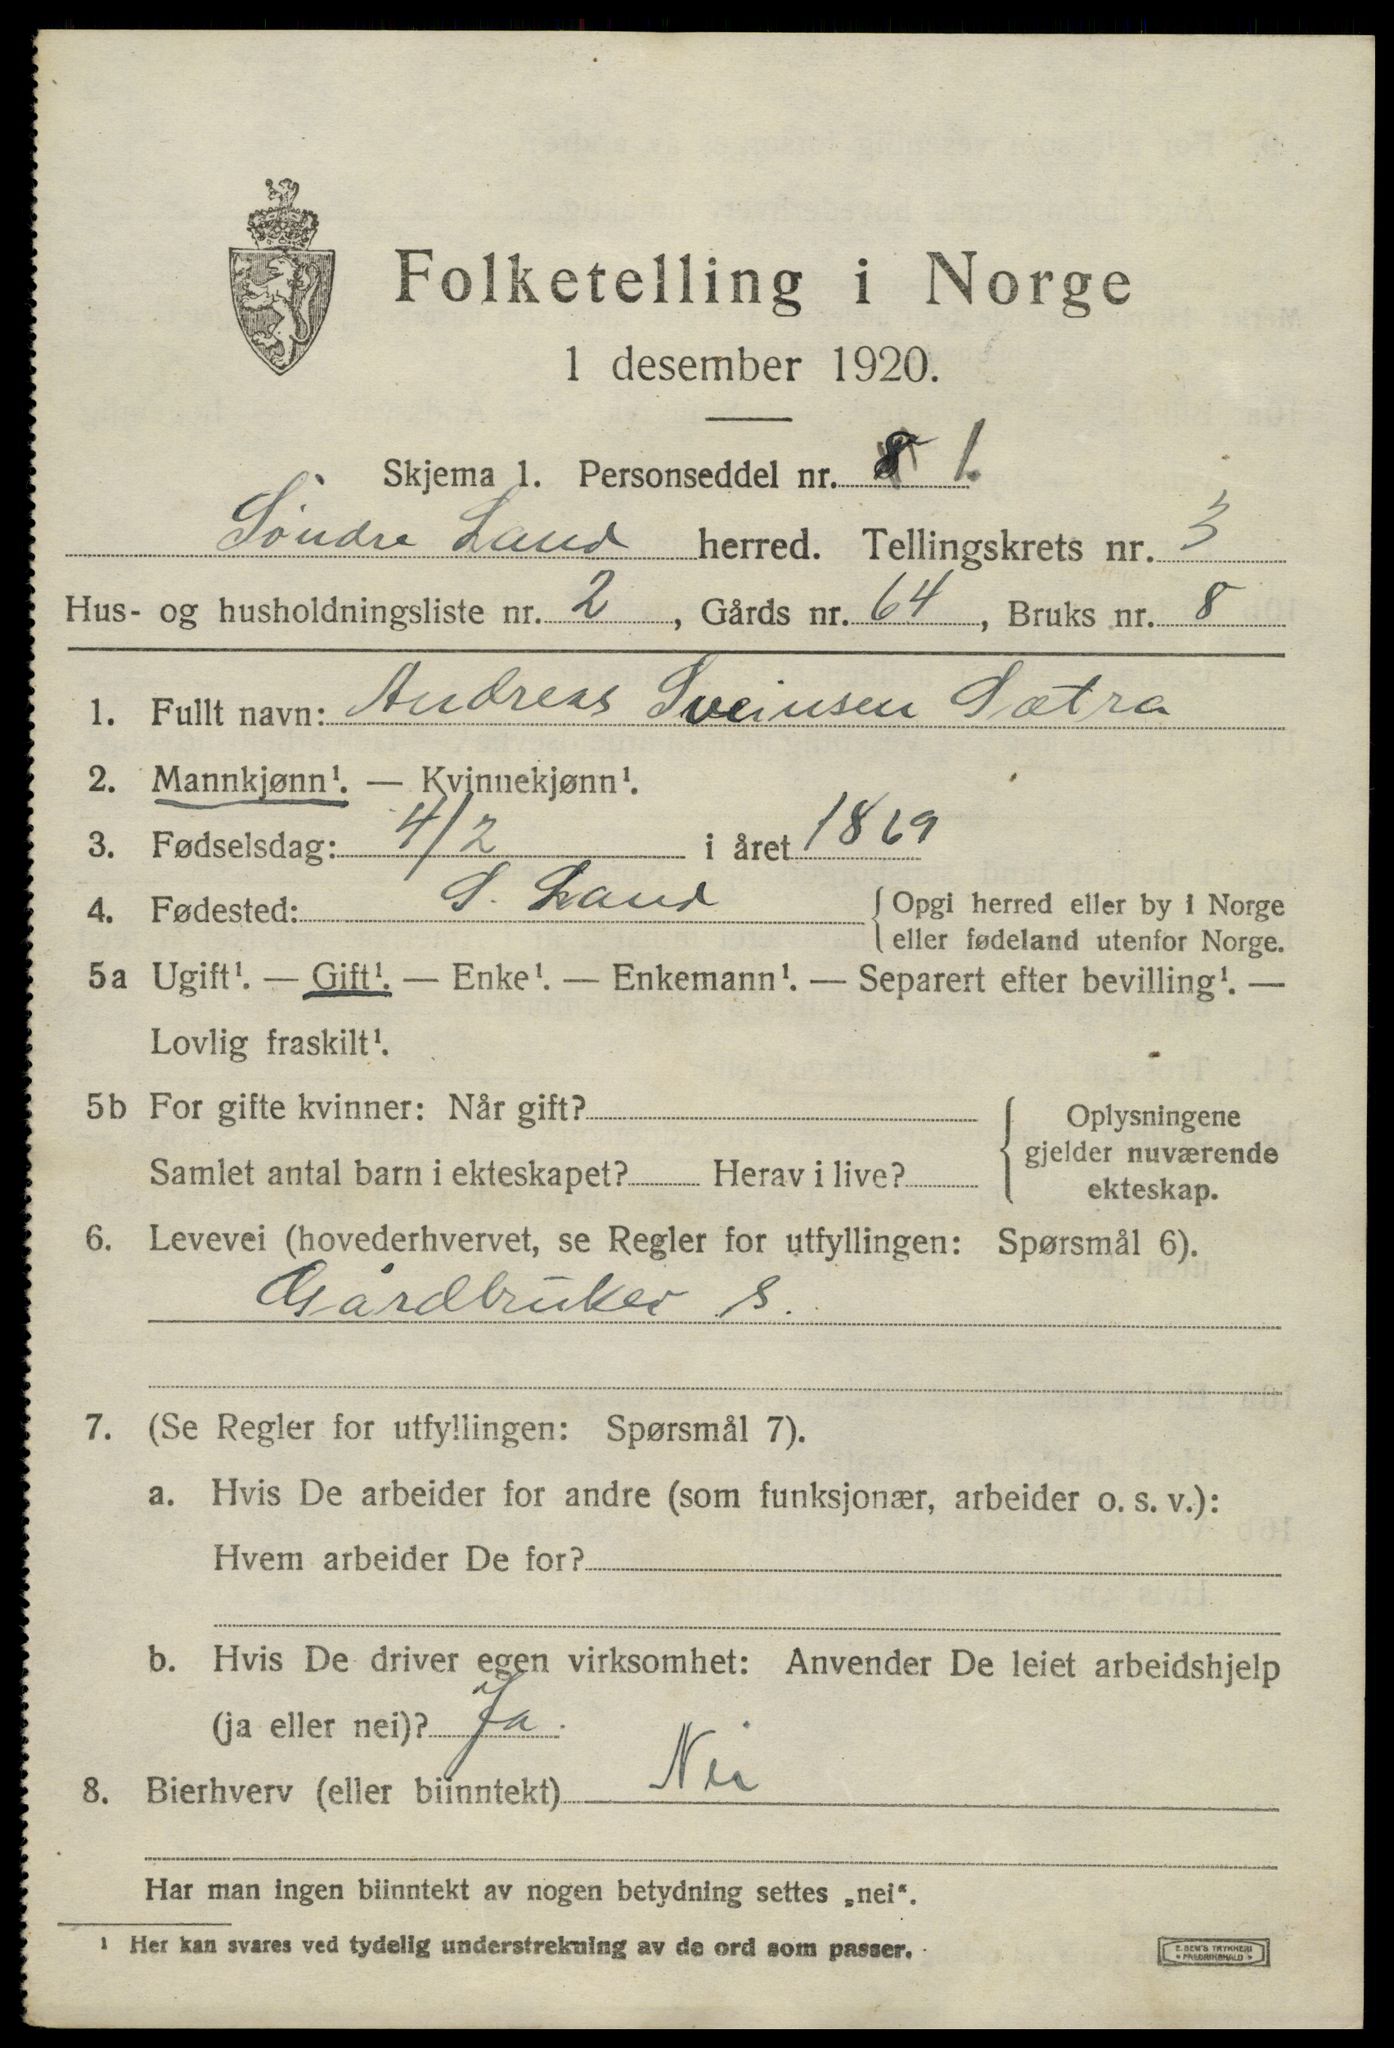 Folketelling i Norge
1 desember 1920.
Skjema 1. Personseddel nr. 1.
Søndre Land herred. Tellingskrets nr. 3
Hus- og husholdningsliste nr. 2, Gårds nr. 64, Bruks nr. 8
1. Fullt navn: Andreas Sveinsen Sætra
2. Mannkjønn¹. — Kvinnekjønn¹.
3. Fødselsdag: 4/2 i året 1869
4. Fødested: S. Land { Opgi herred eller by i Norge
eller fødeland utenfor Norge.
5a Ugift¹. — Gift¹. — Enke¹. — Enkemann¹. — Separert efter bevilling¹. —
Lovlig fraskilt¹.
5b For gifte kvinner: Når gift? { Oplysningene
gjelder nuværende
ekteskap.
Samlet antal barn i ekteskapet? Herav i live?
6. Levevei (hovederhvervet, se Regler for utfyllingen: Spørsmål 6).
Gårdbruker S.
7. (Se Regler for utfyllingen: Spørsmål 7).
a. Hvis De arbeider for andre (som funksjonær, arbeider o. s. v.):
Hvem arbeider De for?
b. Hvis De driver egen virksomhet: Anvender De leiet arbeidshjelp
(ja eller nei)? Ja.
8. Bierhverv (eller biinntekt) Nei
Har man ingen biinntekt av nogen betydning settes „nei“.
¹ Her kan svares ved tydelig understrekning av de ord som passer.
E. SEM'S TRYKKERI
FREDRIKSHALD